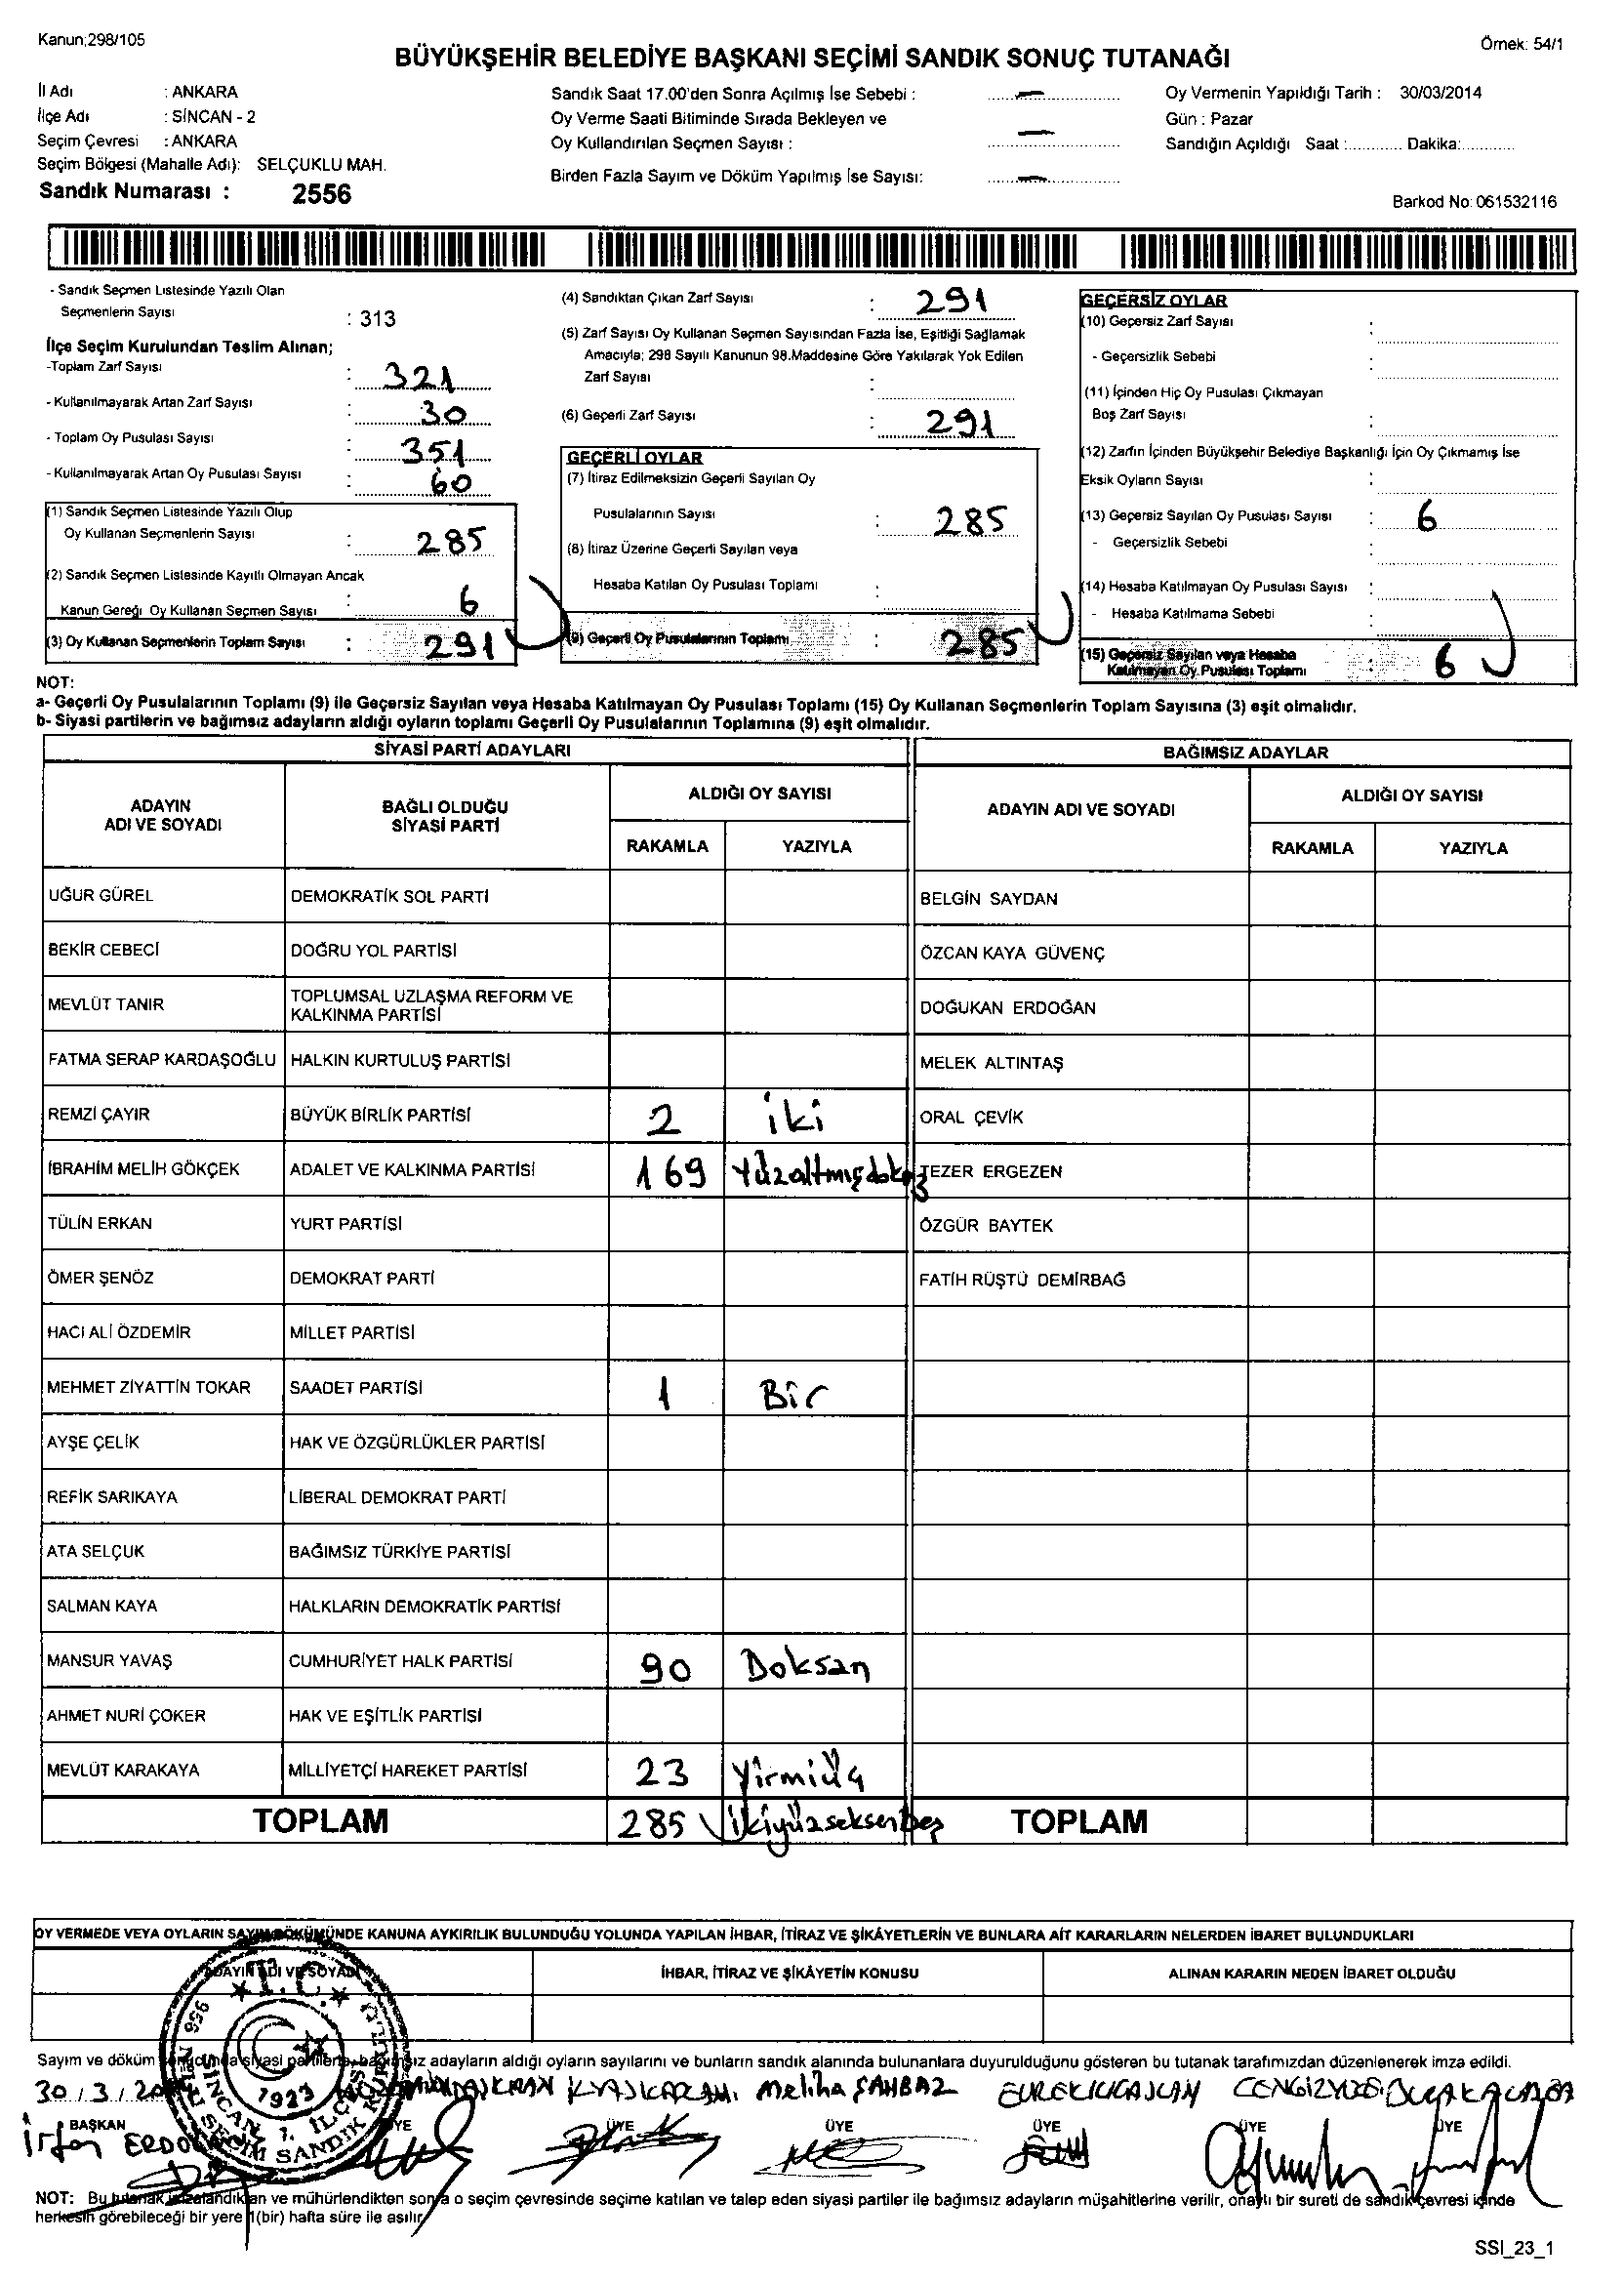 Kanun;298/105
Örnek: 54/1
BÜYÜKŞEHİR BELEDİYE BAŞKANI SEÇİMİ SANDIK SONUÇ TUTANAĞI
İl Adı : ANKARA
İlçe Adı : SİNCAN - 2
Seçim Çevresi : ANKARA
Seçim Bölgesi (Mahalle Adı): SELÇUKLU MAH.
Sandık Numarası : 2556
Sandık Saat 17.00'den Sonra Açılmış İse Sebebi : —
Oy Verme Saati Bitiminde Sırada Bekleyen ve
Oy Kullandırılan Seçmen Sayısı : —
Birden Fazla Sayım ve Döküm Yapılmış İse Sayısı: —
Oy Vermenin Yapıldığı Tarih : 30/03/2014
Gün : Pazar
Sandığın Açıldığı Saat :............ Dakika:............
Barkod No: 061532116
- Sandık Seçmen Listesinde Yazılı Olan
Seçmenlerin Sayısı : 313
İlçe Seçim Kurulundan Teslim Alınan;
-Toplam Zarf Sayısı : 321
- Kullanılmayarak Artan Zarf Sayısı : 30
- Toplam Oy Pusulası Sayısı : 351
- Kullanılmayarak Artan Oy Pusulası Sayısı : 60
(1) Sandık Seçmen Listesinde Yazılı Olup
Oy Kullanan Seçmenlerin Sayısı : 285
(2) Sandık Seçmen Listesinde Kayıtlı Olmayan Ancak
Kanun Gereği Oy Kullanan Seçmen Sayısı : 6
(3) Oy Kullanan Seçmenlerin Toplam Sayısı : 291
(4) Sandıktan Çıkan Zarf Sayısı : 291
(5) Zarf Sayısı Oy Kullanan Seçmen Sayısından Fazla İse, Eşitliği Sağlamak
Amacıyla; 298 Sayılı Kanunun 98.Maddesine Göre Yakılarak Yok Edilen
Zarf Sayısı :
(6) Geçerli Zarf Sayısı : 291
GEÇERLİ OYLAR
(7) İtiraz Edilmeksizin Geçerli Sayılan Oy
Pusulalarının Sayısı : 285
(8) İtiraz Üzerine Geçerli Sayılan veya
Hesaba Katılan Oy Pusulası Toplamı :
(9) Geçerli Oy Pusulalarının Toplamı : 285
GEÇERSİZ OYLAR
(10) Geçersiz Zarf Sayısı :
- Geçersizlik Sebebi :
(11) İçinden Hiç Oy Pusulası Çıkmayan
Boş Zarf Sayısı :
(12) Zarfın İçinden Büyükşehir Belediye Başkanlığı İçin Oy Çıkmamış İse
Eksik Oyların Sayısı :
(13) Geçersiz Sayılan Oy Pusulası Sayısı : 6
- Geçersizlik Sebebi :
(14) Hesaba Katılmayan Oy Pusulası Sayısı :
- Hesaba Katılmama Sebebi :
(15) Geçersiz Sayılan veya Hesaba
Katılmayan Oy Pusulası Toplamı : 6
NOT:
a- Geçerli Oy Pusulalarının Toplamı (9) ile Geçersiz Sayılan veya Hesaba Katılmayan Oy Pusulası Toplamı (15) Oy Kullanan Seçmenlerin Toplam Sayısına (3) eşit olmalıdır.
b- Siyasi partilerin ve bağımsız adayların aldığı oyların toplamı Geçerli Oy Pusulalarının Toplamına (9) eşit olmalıdır.
SİYASİ PARTİ ADAYLARI BAĞIMSIZ ADAYLAR
ADAYIN ADI VE SOYADI BAĞLI OLDUĞU SİYASİ PARTİ ALDIĞI OY SAYISI ADAYIN ADI VE SOYADI ALDIĞI OY SAYISI
RAKAMLA YAZIYLA RAKAMLA YAZIYLA
UĞUR GÜREL DEMOKRATİK SOL PARTİ BELGİN SAYDAN
BEKİR CEBECİ DOĞRU YOL PARTİSİ ÖZCAN KAYA GÜVENÇ
MEVLÜT TANIR TOPLUMSAL UZLAŞMA REFORM VE KALKINMA PARTİSİ DOĞUKAN ERDOĞAN
FATMA SERAP KARDAŞOĞLU HALKIN KURTULUŞ PARTİSİ MELEK ALTINTAŞ
REMZİ ÇAYIR BÜYÜK BİRLİK PARTİSİ 2 iki ORAL ÇEVİK
İBRAHİM MELİH GÖKÇEK ADALET VE KALKINMA PARTİSİ 169 Yüzaltmışdokuz TEZER ERGEZEN
TÜLİN ERKAN YURT PARTİSİ ÖZGÜR BAYTEK
ÖMER ŞENÖZ DEMOKRAT PARTİ FATİH RÜŞTÜ DEMİRBAĞ
HACI ALİ ÖZDEMİR MİLLET PARTİSİ
MEHMET ZİYATTİN TOKAR SAADET PARTİSİ 1 Bir
AYŞE ÇELİK HAK VE ÖZGÜRLÜKLER PARTİSİ
REFİK SARIKAYA LİBERAL DEMOKRAT PARTİ
ATA SELÇUK BAĞIMSIZ TÜRKİYE PARTİSİ
SALMAN KAYA HALKLARIN DEMOKRATİK PARTİSİ
MANSUR YAVAŞ CUMHURİYET HALK PARTİSİ 90 Doksan
AHMET NURİ ÇOKER HAK VE EŞİTLİK PARTİSİ
MEVLÜT KARAKAYA MİLLİYETÇİ HAREKET PARTİSİ 23 Yirmiüç
TOPLAM 285 İkiyüzseksenbeş TOPLAM
OY VERMEDE VEYA OYLARIN SAYIM DÖKÜMÜNDE KANUNA AYKIRILIK BULUNDUĞU YOLUNDA YAPILAN İHBAR, İTİRAZ VE ŞİKÂYETLERİN VE BUNLARA AİT KARARLARIN NELERDEN İBARET BULUNDUKLARI
ADAYIN ADI VE SOYADI İHBAR, İTİRAZ VE ŞİKÂYETİN KONUSU ALINAN KARARIN NEDEN İBARET OLDUĞU
T.C.
1923
Sayım ve döküm sonucunda siyasi partilerle, bağımsız adayların aldığı oyların sayılarını ve bunların sandık alanında bulunanlara duyurulduğunu gösteren bu tutanak tarafımızdan düzenlenerek imza edildi.
30/3/20 Meliha ŞAHBAZ
BAŞKAN ÜYE ÜYE ÜYE ÜYE ÜYE ÜYE
İrfan
NOT: Bu tutanak imzalandıktan ve mühürlendikten sonra o seçim çevresinde seçime katılan ve talep eden siyasi partiler ile bağımsız adayların müşahitlerine verilir, onaylı bir sureti de sandık çevresi içinde
herkesin görebileceği bir yere 1(bir) hafta süre ile asılır.
SSI_23_1